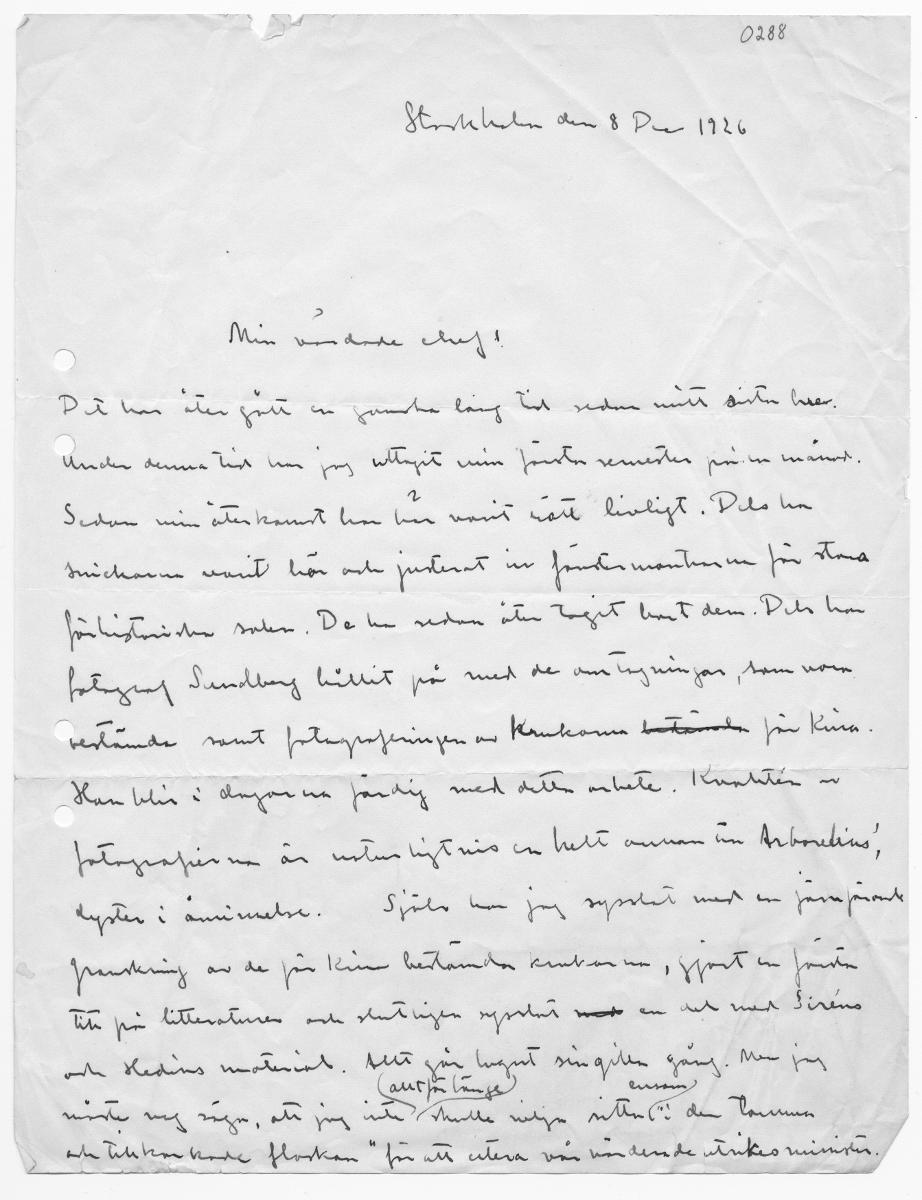 0288
Stockholm den 8 Dec 1926
Min vördade chef!
Det har åter gått en ganska lång tid sedan mitt sista brev.
Under denna tid har jag uttagit min första semester på en månad.
Sedan min återkomst har här varit rätt livligt. Dels ha
snickarna varit här och justerat in fönstermontrarna för stora
förhistoriska salen. De ha sedan åter tagit bort dem. Dels har
fotograf Sundberg hållit på med de omtagningar, som voro
bestämda samt fotograferingen av krukorna bestämda för Kina.
Han blir i dagarna färdig med detta arbete. Kvalitén av
fotografierna är naturligtvis en helt annan än Arborelius',
dyster i åminnelse. Själv har jag sysslat med en jämförande
granskning av de för Kina bestämda krukorna, gjort en första
titt på litteraturen och slutligen sysslat med en del med Siréns
och Hedins material. Allt går lugnt sin gilla gång. Men jag
alltför länge ensam
måste nog säga, att jag inte skulle vilja sitta "i den tomma
och tillkorkade flaskan" för att citera vår värderade utrikesminister.